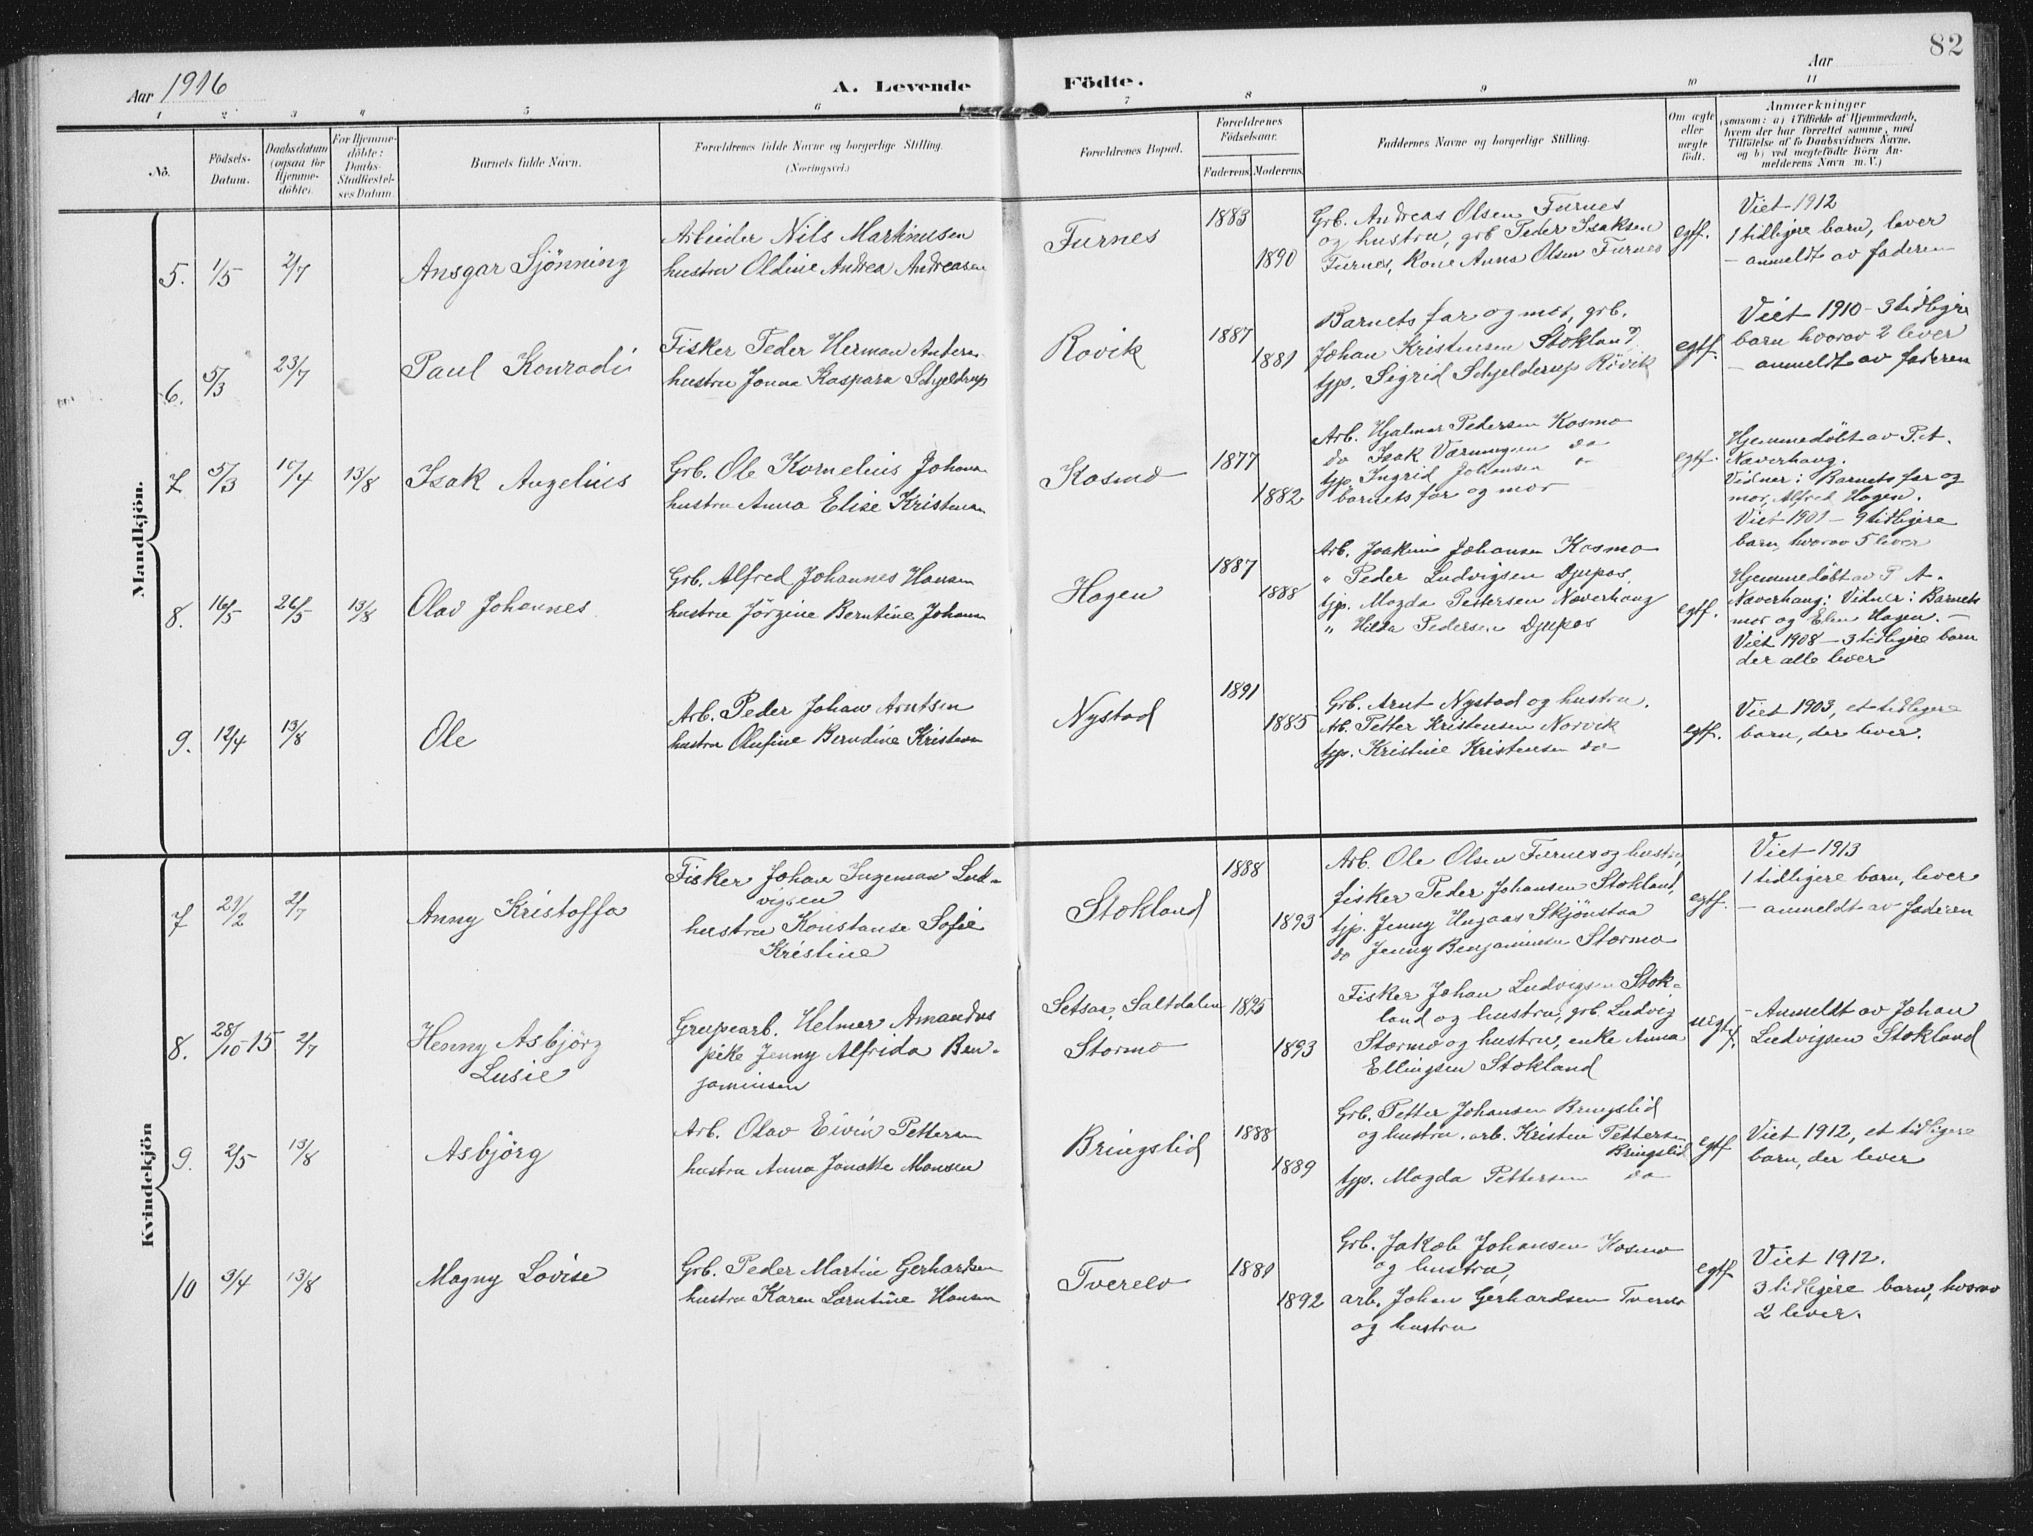 82
Aar 1916
A. Levende Födte.
Aar
1 2 3 4 5 6 7 8 9 10 11
No.
Födsels-Datum.
Daabsdatum (ogsaa for Hjemme-döbte).
For Hjemme-döbte: Daabs-Stadfæstel-ses Datum.
Barnets fulde Navn.
Forældrenes fulde Navne og borgerlige Stilling.
(Næringsvei.)
Forældrenes Bopæl.
Forældrenes Födselsaar.
Faderens. Moderens.
Faddernes Navne og borgerlige Stilling.
Om ægte eller uægte födt.
Anmærkninger
(saasom: a) i Tilfælde af Hjemmedaab,
hvem der har forrettet samme, med
Tilföielse af to Daabsvidners Navne,
og b) ved uægtefödte Börn An-
melderens Navn m. V.)
Mandkjön.
5. 1/5 2/7 Ansgar Sjönning
Arbeider Nils Martinusen
hustru Oldine Andrea Andreasen
Furnes
1883
1890
Grb. Andreas Olsen Furnes
og hustru, grb Peder Isaksen
Furnes, Kone Anna Olsen Furnes
egtf.
Viet 1912
1 tidligere barn, lever
– anmeldt av faderen
6. 5/3 23/7 Paul Konradi
Fisker Peder Herman
hustru Jonna Kaspara Schjeldrup
Rövik
1887
1881
Barnets far og mor, grb.
Johan Kristensen Stokland,
tjp. Sigrid Schjelderup Rövik
egtf.
Viet 1910 – 3 tidligere
barn hvorav 2 lever
– anmeldt av faderen
7. 5/3 10/4 13/8 Isak Angelius
Grb. Ole Kornelius Johans
hustru Anna Elise Kristensen
Kosmo
1877
1882
Arb. Hjalmar Pedersen Kosmo
do Isak do
tjp. Ingrid Johansen
barnets far og mor
egtf.
Hjemmedøbt av P. A.
Naverhaug.
Vidner: Barnets far og
mor, Alfred Hagen.
Viet 1901 – 9 tidligere
barn, hvorav 5 lever
8. 16/5 26/5 13/8 Olav Johannes
Grb. Alfred Johannes Hansen
hustru Jörgine Berntine Johans
Hagen
1887
1888
Arb. Joakim Johansen Kosmo
" Peder Ludvigsen Djupos,
tjp. Magda Pettersen Naverhaug
" Hilda Pedersen Djupos
egtf.
Hjemmedøbt av P. A.
Naverhaug: Vidner: Barnets
mor og Elen Hagen. –
Viet 1908 – 3 tidligere barn
der alle lever
9. 12/4 13/8 Ole
Arb. Peder Johan Arntsen
hustru Olufine Berndine Kristensen
Nystad
1891
1885
Grb. Arnt Nystad og hustru.
Arb. Petter Kristensen Norvik
tjp. Kristine Kristensen do
egtf.
Viet 1903, et tidligere
barn, der lever.
Kvindekjön
7 21/2 2/7 Anny Kristoffa
Fisker Johan Ingeman Lud-
vigsen
hustru Konstanse Sofie
Kristine
Stokland
1888
1893
Arb. Ole Olsen Furnes og hustru,
fisker Peder Johansen Stokland,
tjp. Jenny Hugaas Skjönstaa
do Jenny Benjaminsen Stormo
egtf.
Viet 1913
1 tidligere barn, lever
– anmeldt av faderen
8. 28/10 15 2/7 Henny Asbjörg
Lusie
Grupearb. Helmer Amandus
pike Jenny Alfrida Ben-
jaminsen
Setsaa, Saltdalen
Stormo
1895
1893
Fisker Johan Ludvigsen Stok-
land og hustru, grb. Ludvig
Stormo og hustru, enke Anna
Ellingsen Stokland
uegtf.
– Anmeldt av Johan
Ludvigsen Stokland
9. 2/5 13/8 Asbjörg
Arb. Olav Eivin Pettersen
hustru Anna Jonette Monsen
Bringslid
1888
1889
Grb. Petter Johansen Bringslid
og hustru. arb. Kristine Pettersen
Bringslid
tjp. Magda Pettersen do
egtf
Viet 1912, et tidligere
barn, der lever
10 3/4 13/8 Magny Lovise
Grb. Peder Martin Gerhardsen
hustru Karen Larntine Hansen
Tverelv
1881
1892
Grb. Jakob Johansen Kosmo
og hustru,
arb. Johan Gerhardsen Tverelv
og hustru
egtf
Viet 1912.
3 tidligere barn, hvorav
2 lever.